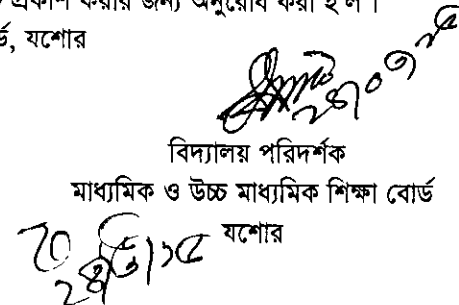 প্রকাশ করার জন্য অনুরোধ করা হ'ল।
র্ড, যশোর
বিদ্যালয় পরিদর্শক
মাধ্যমিক ও উচ্চ মাধ্যমিক শিক্ষা বোর্ড
যশোর